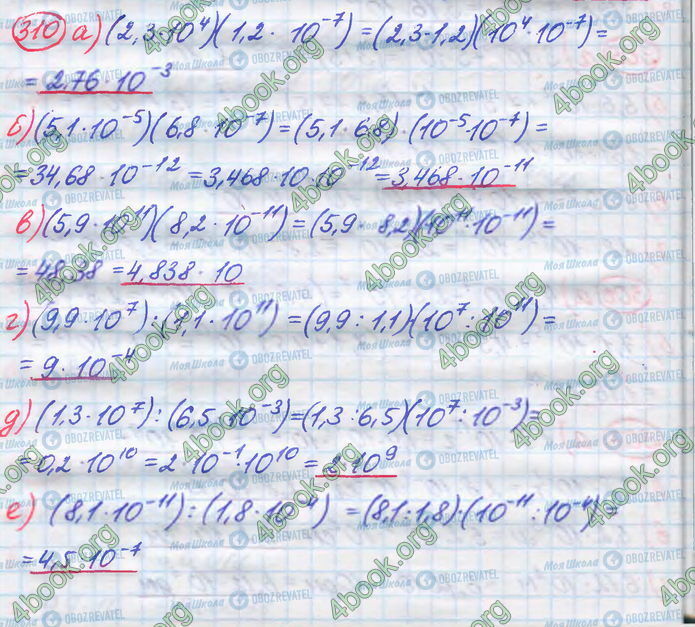 310 а) (2,3·10⁴)(1,2· 10⁻⁷) = (2,3·1,2)(10⁴·10⁻⁷) =
= 2,76·10⁻³
б) (5,1·10⁻⁵)(6,8·10⁻⁷) = (5,1·6,8)·(10⁻⁵·10⁻⁷) =
= 34,68·10⁻¹² = 3,468·10·10⁻¹² = 3,468·10⁻¹¹
в) (5,9·10¹¹)(8,2·10⁻¹¹) = (5,9·8,2)(10¹¹·10⁻¹¹) =
= 48,38 = 4,838·10
г) (9,9·10⁷):(1,1·10¹¹) = (9,9:1,1)(10⁷:10¹¹) =
= 9·10⁻⁴
д) (1,3·10⁷):(6,5·10⁻³) = (1,3:6,5)(10⁷:10⁻³) =
= 0,2·10¹⁰ = 2·10⁻¹·10¹⁰ = 2·10⁹
е) (8,1·10⁻¹¹):(1,8·10⁻⁴) = (8,1:1,8):(10⁻¹¹:10⁻⁴) =
= 4,5·10⁻⁷
4book.org
МояШкола OBOZREVATEL